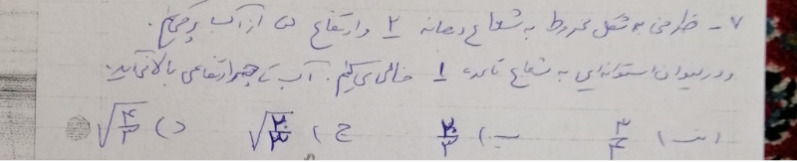 ۷- ظرفی به شکل مخروط به شعاع دهانه ۲ و ارتفاع ۵ از آب پر می‌کنیم.
و در لیوان استوانه‌ای به شعاع قاعده ۱ خالی می‌کنیم. آب تا چه ارتفاعی بالا می‌آید.
الف) ۳/۴ ب) ۲۰/۳ ج) √۲۰/۳ د) √۴/۳